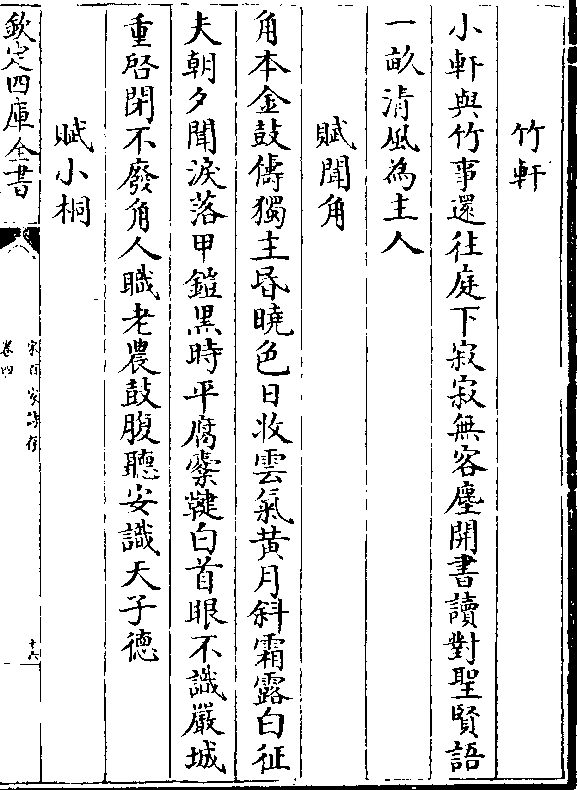 竹軒
小軒與竹事還往庭下寂寂無客塵開書讀對聖賢語
一畝清風為主人
賦聞角
角本金鼓儔獨主昏曉色日收雲氣黄月斜霜露白征
夫朝夕聞淚落甲鎧黒時平腐櫜鞬白首眼不識嚴城
重啓閉不廢角人職老農鼓腹聽安識天子德
賦小桐
欽定四庫全書
卷四
十六